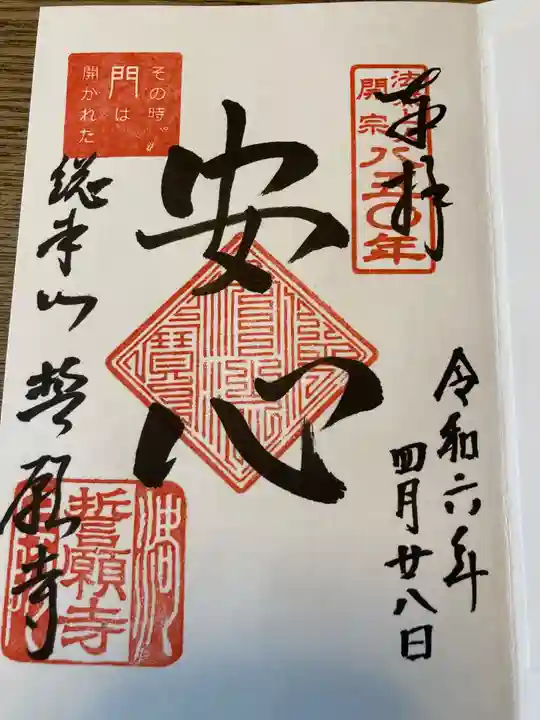 奉拝
開宗八五〇年
令和六年
四月廿八日
安心
その時〃
門は
開かれた
総本山誓願寺
誓願寺